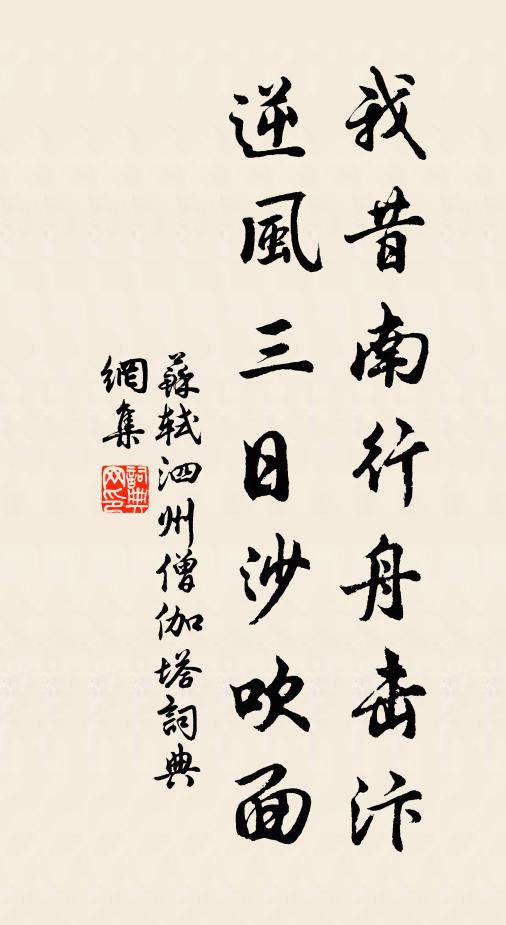 我昔南行舟击汴
逆風三日沙吹面
蘇軾泗州僧伽塔詞典
網集
詞典
网印